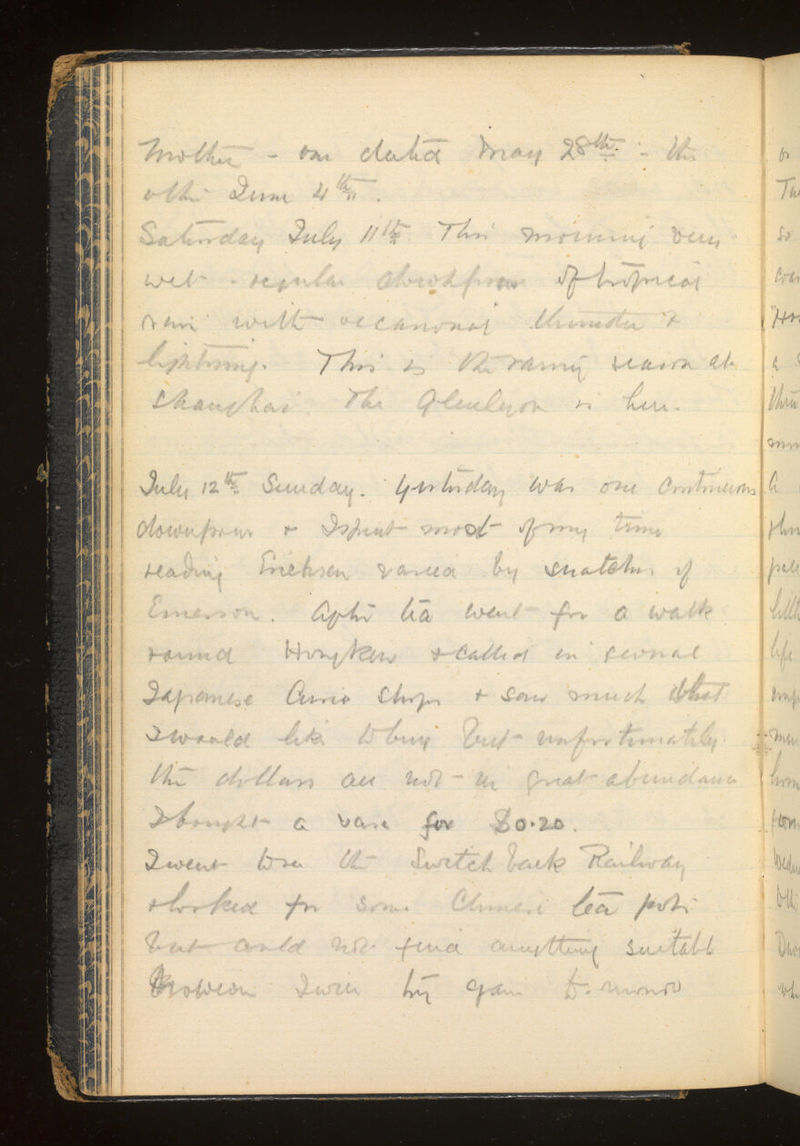 Mother - one dated May 28th - the
other June 4th.
Saturday July 11th This morning very
wet - regular downpour of tropical
rain with occasional thunder &
lightning. This is the rainy season at
Shanghai. The Glenlyon is here.
July 12th Sunday. Yesterday was one continuous
downpour & I spent most of my time
reading Erichsen varied by snatches of
Emerson. After tea went for a walk
round Hongkew & called in several
Japanese Curio Shops & saw much that
I would like to buy but unfortunately
the dollars are not in great abundance
I bought a vase for $0.20.
I went to see the Switch back Railway
& looked for some Chinese tea pots
but could not find anything suitable
However I will try again to-morrow
or
so
a
a
life